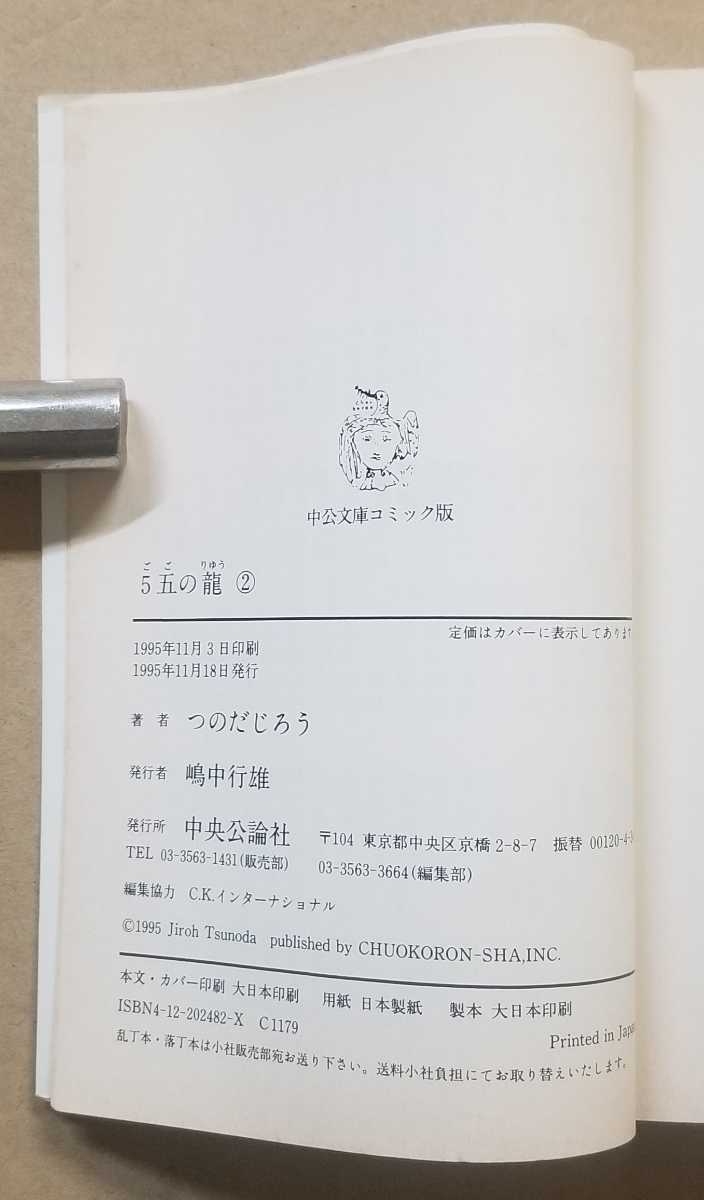 中公文庫コミック版
ご ご りゆう
5五の龍 ②
定価はカバーに表示してあります
1995年11月3日印刷
1995年11月18日発行
著 者 つのだじろう
発行者 嶋中行雄
発行所 中央公論社 〒104 東京都中央区京橋2-8-7 振替 00120-4-
TEL 03-3563-1431(販売部) 03-3563-3664(編集部)
編集協力 C.K.インターナショナル
©1995 Jiroh Tsunoda published by CHUOKORON-SHA,INC.
本文・カバー印刷 大日本印刷 用紙 日本製紙 製本 大日本印刷
ISBN4-12-202482-X C1179
Printed in Japa
乱丁本・落丁本は小社販売部宛お送り下さい。送料小社負担にてお取り替えいたします。